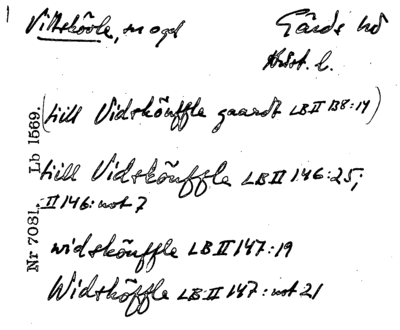 Vittskövle, sn ogd Gärds hd
Krist. l.
(till Vidskõuffle gaardt LB II 138:14)
till Vidskõuffle LB II 146:25;
II 146: not 7
widskõuffle LB II 147:19
Widsköffle LB II 147: not 21
Nr 7081. Lb 1569.